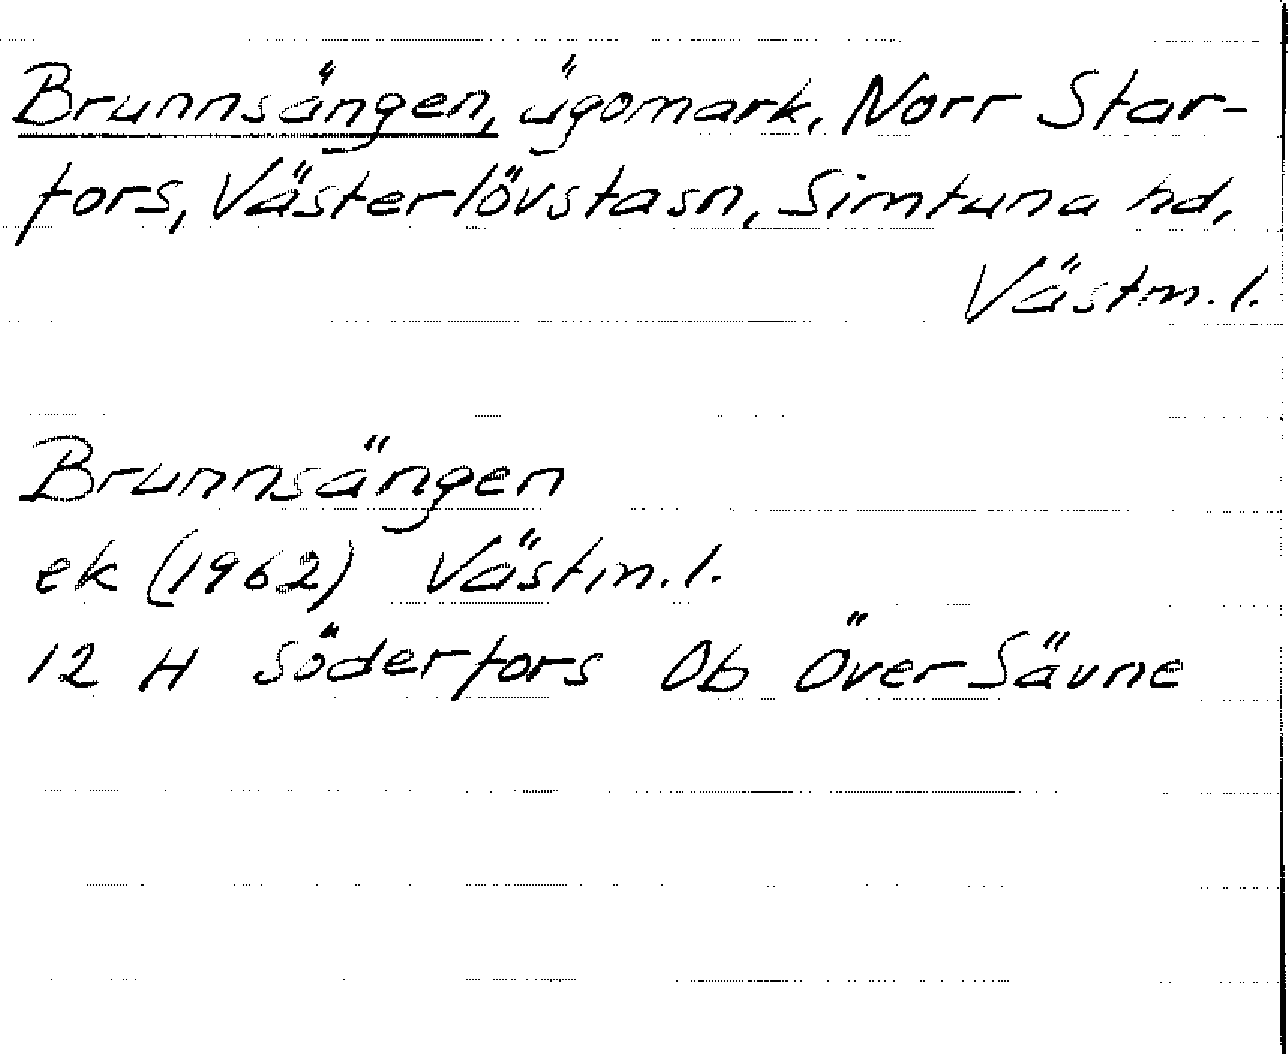 Brunnsängen, ägomark, Norr Star-
fors, Västerlövstasn, Simtuna hd,
Västm.l.
Brunnsängen
ek (1962) Västm.l.
12 H Söderfors 0b Över Sävne